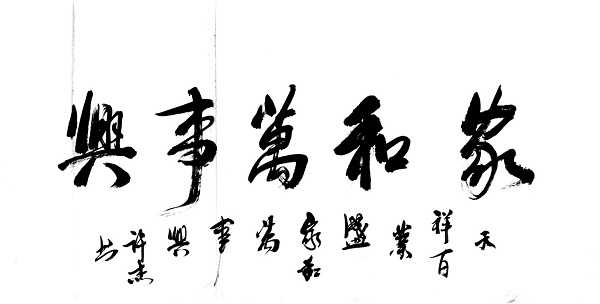 家和萬事興
天祥百業盛家和萬事興許杰书